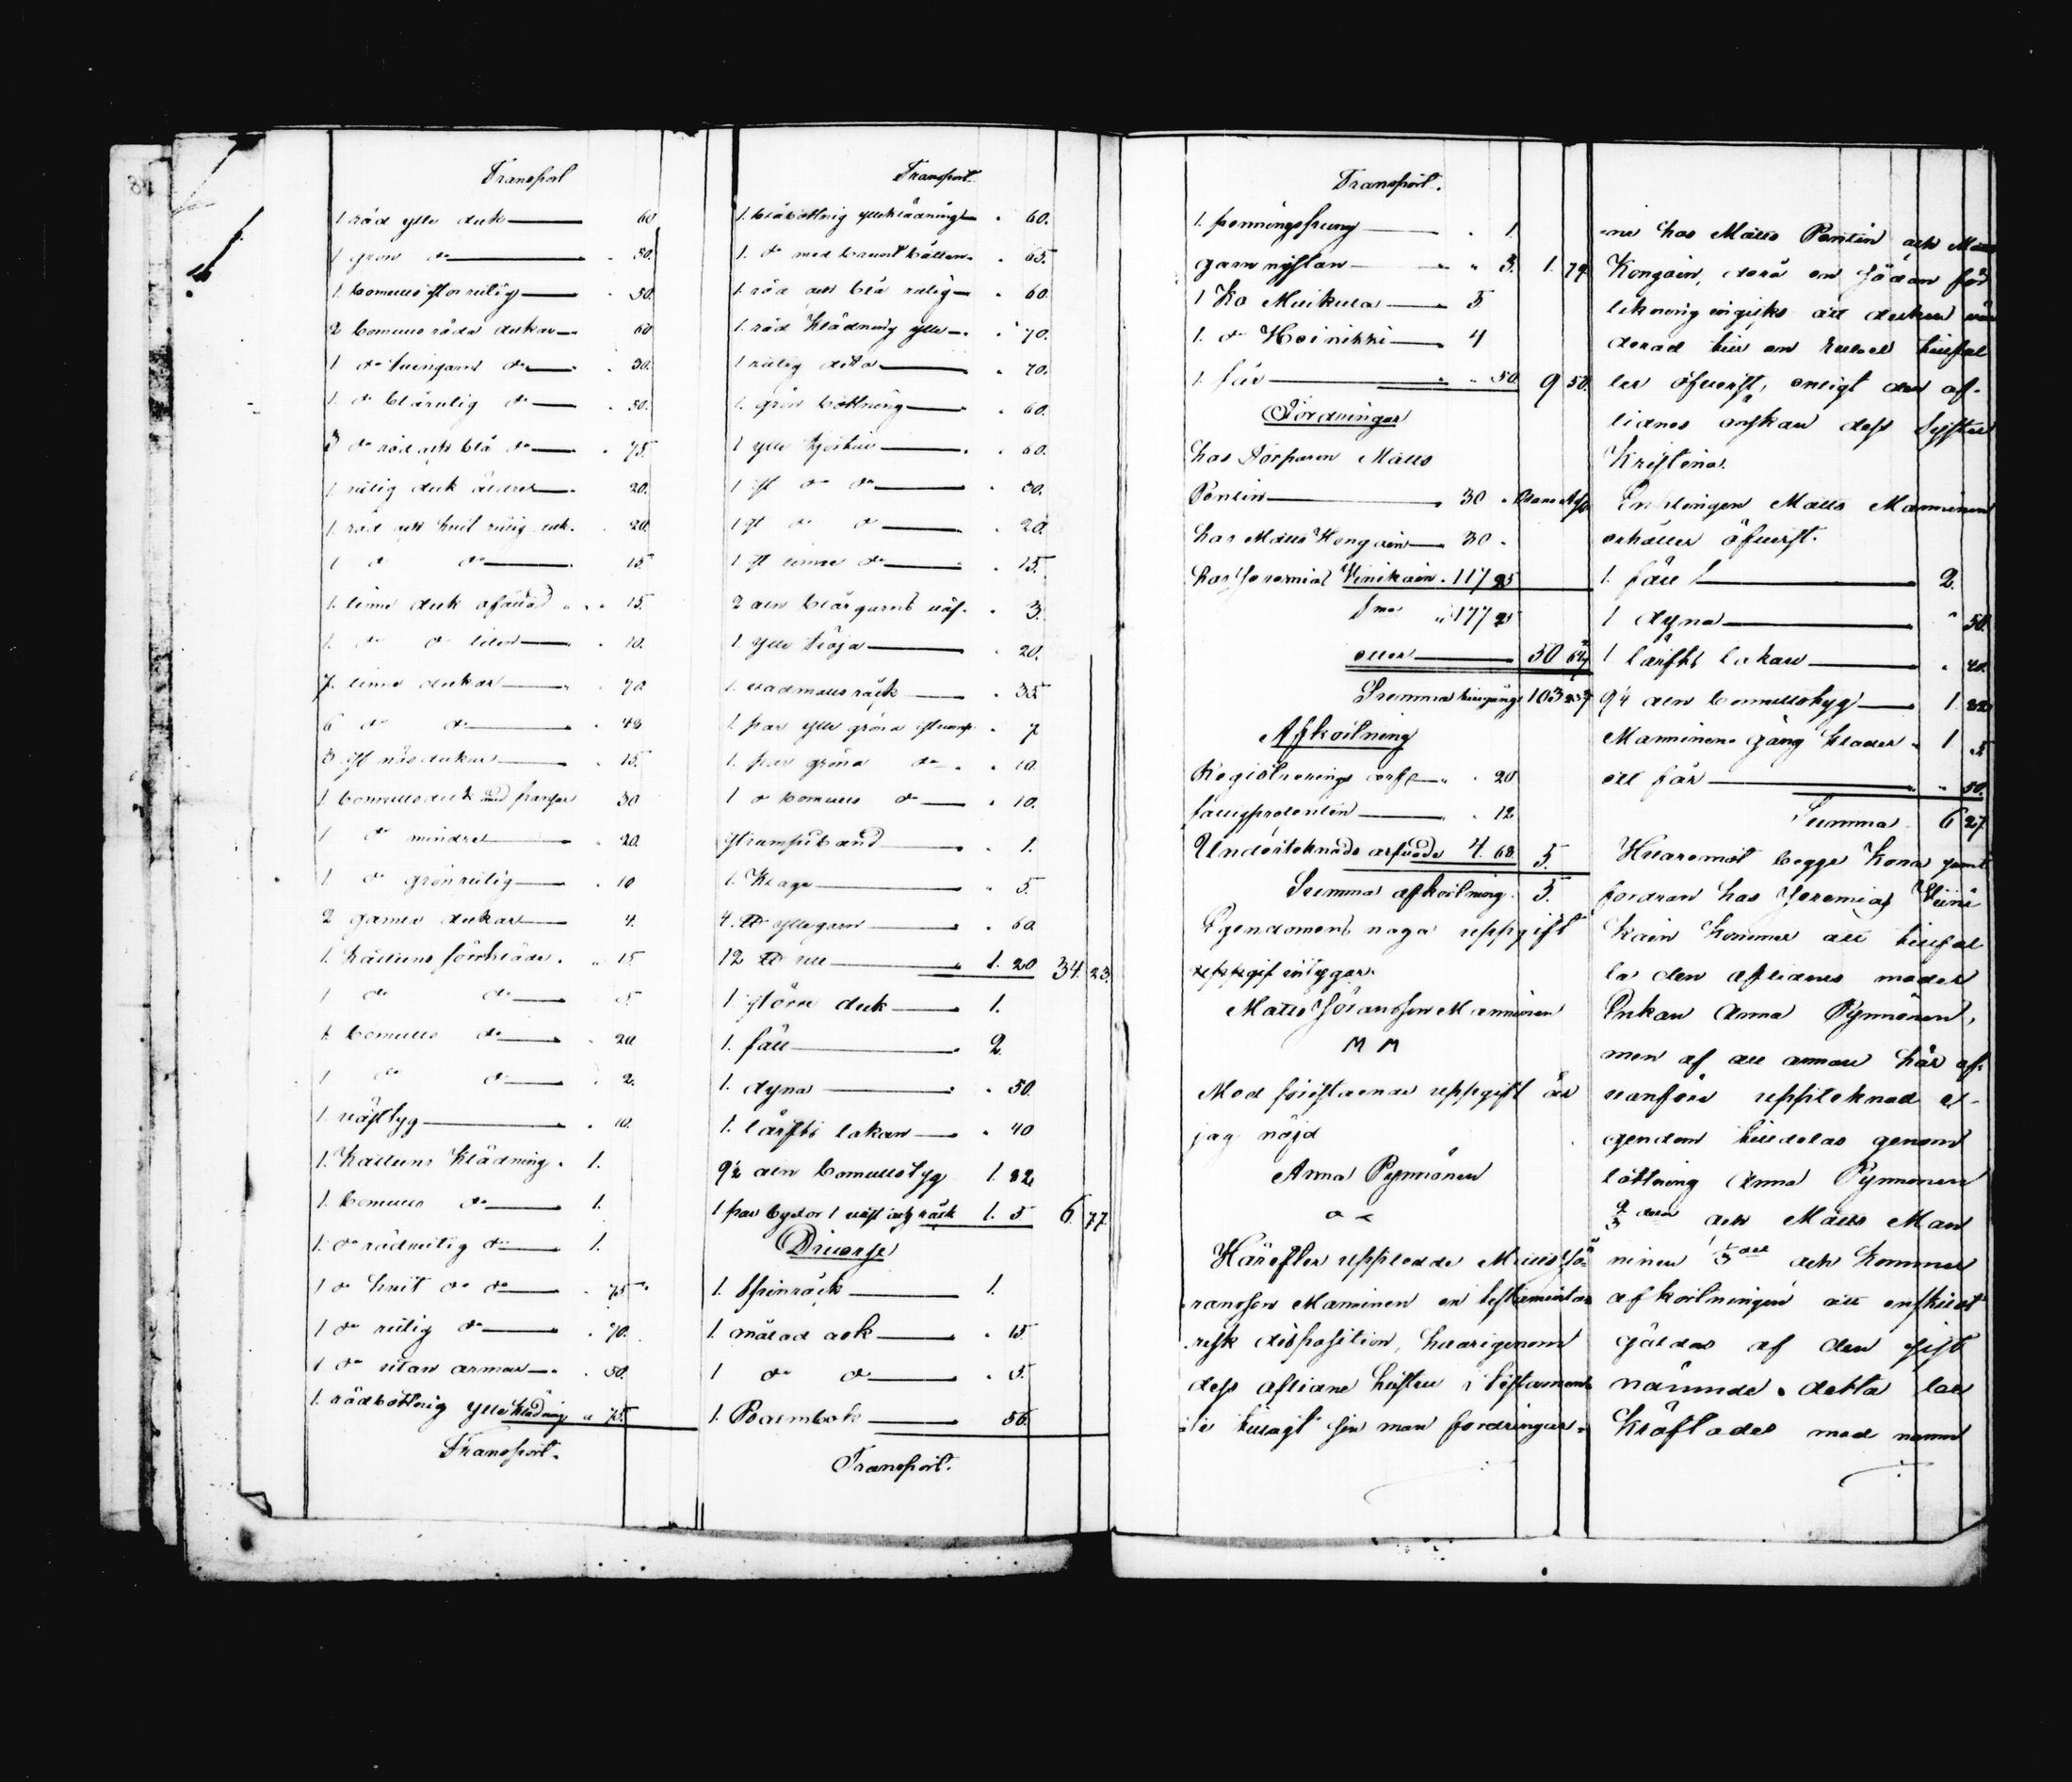 Transport
1 röd ylle duk 60
1 grön do 50.
1. bomulls storrutig 50.
2 bomulls röda dukar 60
1 do tvingarns do 30.
1. do blårutig do 50.
3 do röd och blå do 75.
1 rutig duk äldre 20.
1. röd och hvit rutig duk 20.
1 do do 15.
1. linne duk ofållad 15.
1. do do liten 10.
7. linne dukar 70
6 do do 48
3 st näsdukar 15.
1 bomullsduk med fransar 30
1 do mindre 20.
1 do grönrutig 10
2 gamla dukar 4.
1. kattuns förkläde 15
1 do do 5.
1 bomulls do 20
1 do do 2.
1. västtyg 10.
1. Kattuns Klädning 1.
1. bomulls do 1.
1. do rödrutig do 1.
1 do hvit do do 75
1 do rutig do 70.
1 do utan armar 50.
1. rödbottnig ylle klädning 75.
Transport.
Transport.
1. blåbottnig ylleklädning 60.
1. do med brunt botten 65.
1. röd och blå rutig 60.
1. röd Klädning ylle 70.
1 rutig dito 70.
1. grön bottnig 60.
1 ylle kjortel 60.
1 st do do 30.
1 st do do 20.
1 st linne do 15.
2 aln blårgarns väf 3.
1 ylle tröja 20.
1. vadmals räck 35
1. par ylle gröna strump 7
1. par gröna do 10.
1 do bomulls do 10.
strumpeband 1.
1. Krage 5.
4. ℔ yllegarn 60
12 ℔ ull 1. 20 34. 23.
1 större duk 1.
1. fäll 2.
1. dyna 50.
1. lärfts lakan 40
9½ aln bomullstyg 1. 82
1 par byxor 1 väst och räck 1. 5 6. 77.
Diverse
1. Spinräck 1.
1. målad ask 15
1 do do 5.
1. Psalmbok 56.
Transport.
Transport.
1. penningspung 1.
garn nystan 3. 1. 79.
1 Ko Muikula 5
1. do Heinikki 4
1. får 50 9 50.
Fordringar
hos Torparen Matts
Pentin 30
hos Matts Kongain 30
hos Jeremias Vinikain 117 25
Sma 177 25
eller 50 64
Summa tillgång 103
Afkortning
Registrerings arf 20
fattigprocenten 12
Undertecknads arfvode 4. 68 5.
Summa afkortning 5.
Egendomens noga uppgift
intygar.
Matts Göransson Manninen
M M
Med förestående uppgift är
jag nöjd
Anna Pynnönen
Härefter uppledde Matts Gö-
ransson Manninen en testamenta
risk disposition, hvarigenom
dess aflidne hustru i testamente
tillagt sin man fordringar-
ne hos Matts Pentin och Matts
Kongain, dock en sådan för
likning ingicks att duken vär
derad till en rubel tillfal
ler öfverst, enligt den af-
lidnes önskan dess syster
Kristina.
Enklingen Matts Manninen
erhåller öfverst.
1. fäll 2.
1 dyna 50.
1 lärfts lakan 40
9½ aln bomullstyg 1. 82
Manninens gång kläder 1 5
ett får 50.
Summa 6 27
Hvaremot begge Korna jemte
fordran hos Jeremias Vini
kain kommer att tillfal
la den aflidnes moder
Enkan Anna Pynnönen,
men af all annan här of
vanföre upptecknad e-
gendom tilldelas genom
lottning Anna Pynnönen
⅔ delar och Matts Man
ninen ⅓ del och kommer
afkortningen att enskilt
gäldas af den sist
nämnde. detta be
kräftades med namn